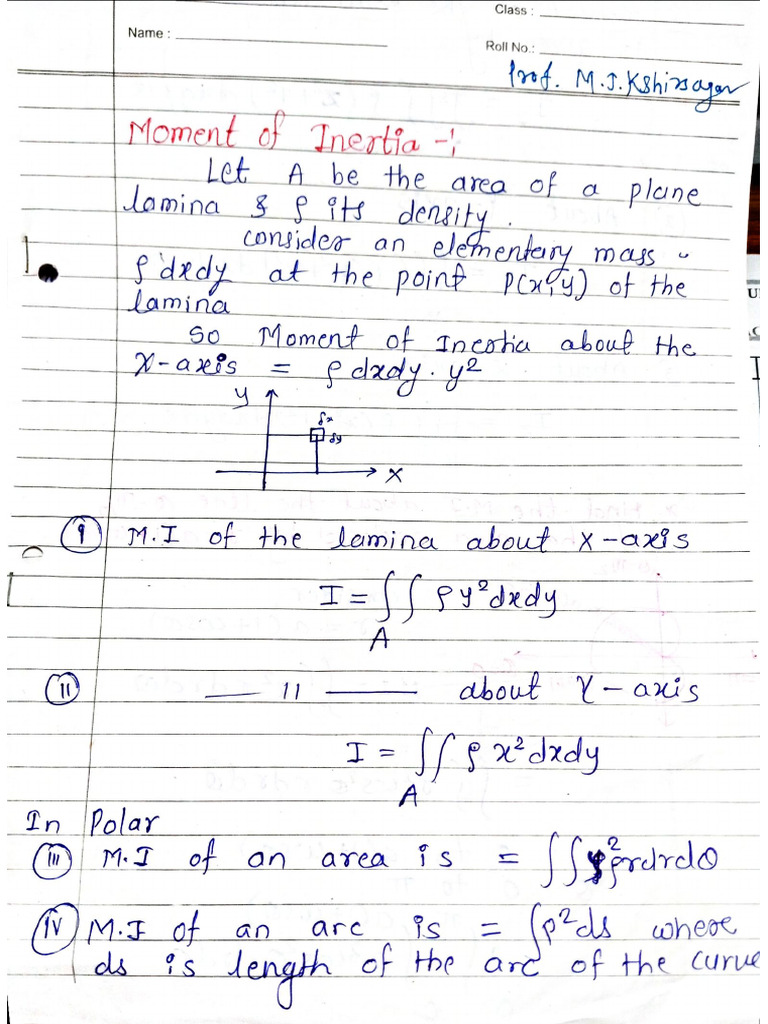 Class :
Name :
Roll No.:
Prof. M.J.Kshirsagar
Moment of Inertia -:
Let A be the area of a plane
lamina & ρ its density.
consider an elementary mass
ρ dxdy at the point P(x,y) of the
lamina
So Moment of Inertia about the
X-axis = ρ dxdy. y²
y
δx
δy
X
(i) M.I of the lamina about X-axis
I = ∫∫ ρ y² dxdy
A
(ii) — 11 — about Y-axis
I = ∫∫ ρ x² dxdy
A
In Polar
(iii) M.I of an area is = ∫∫ ²ρ r dr dθ
(iv) M.I of an arc is = ∫ρ² ds where
ds is length of the arc of the curve